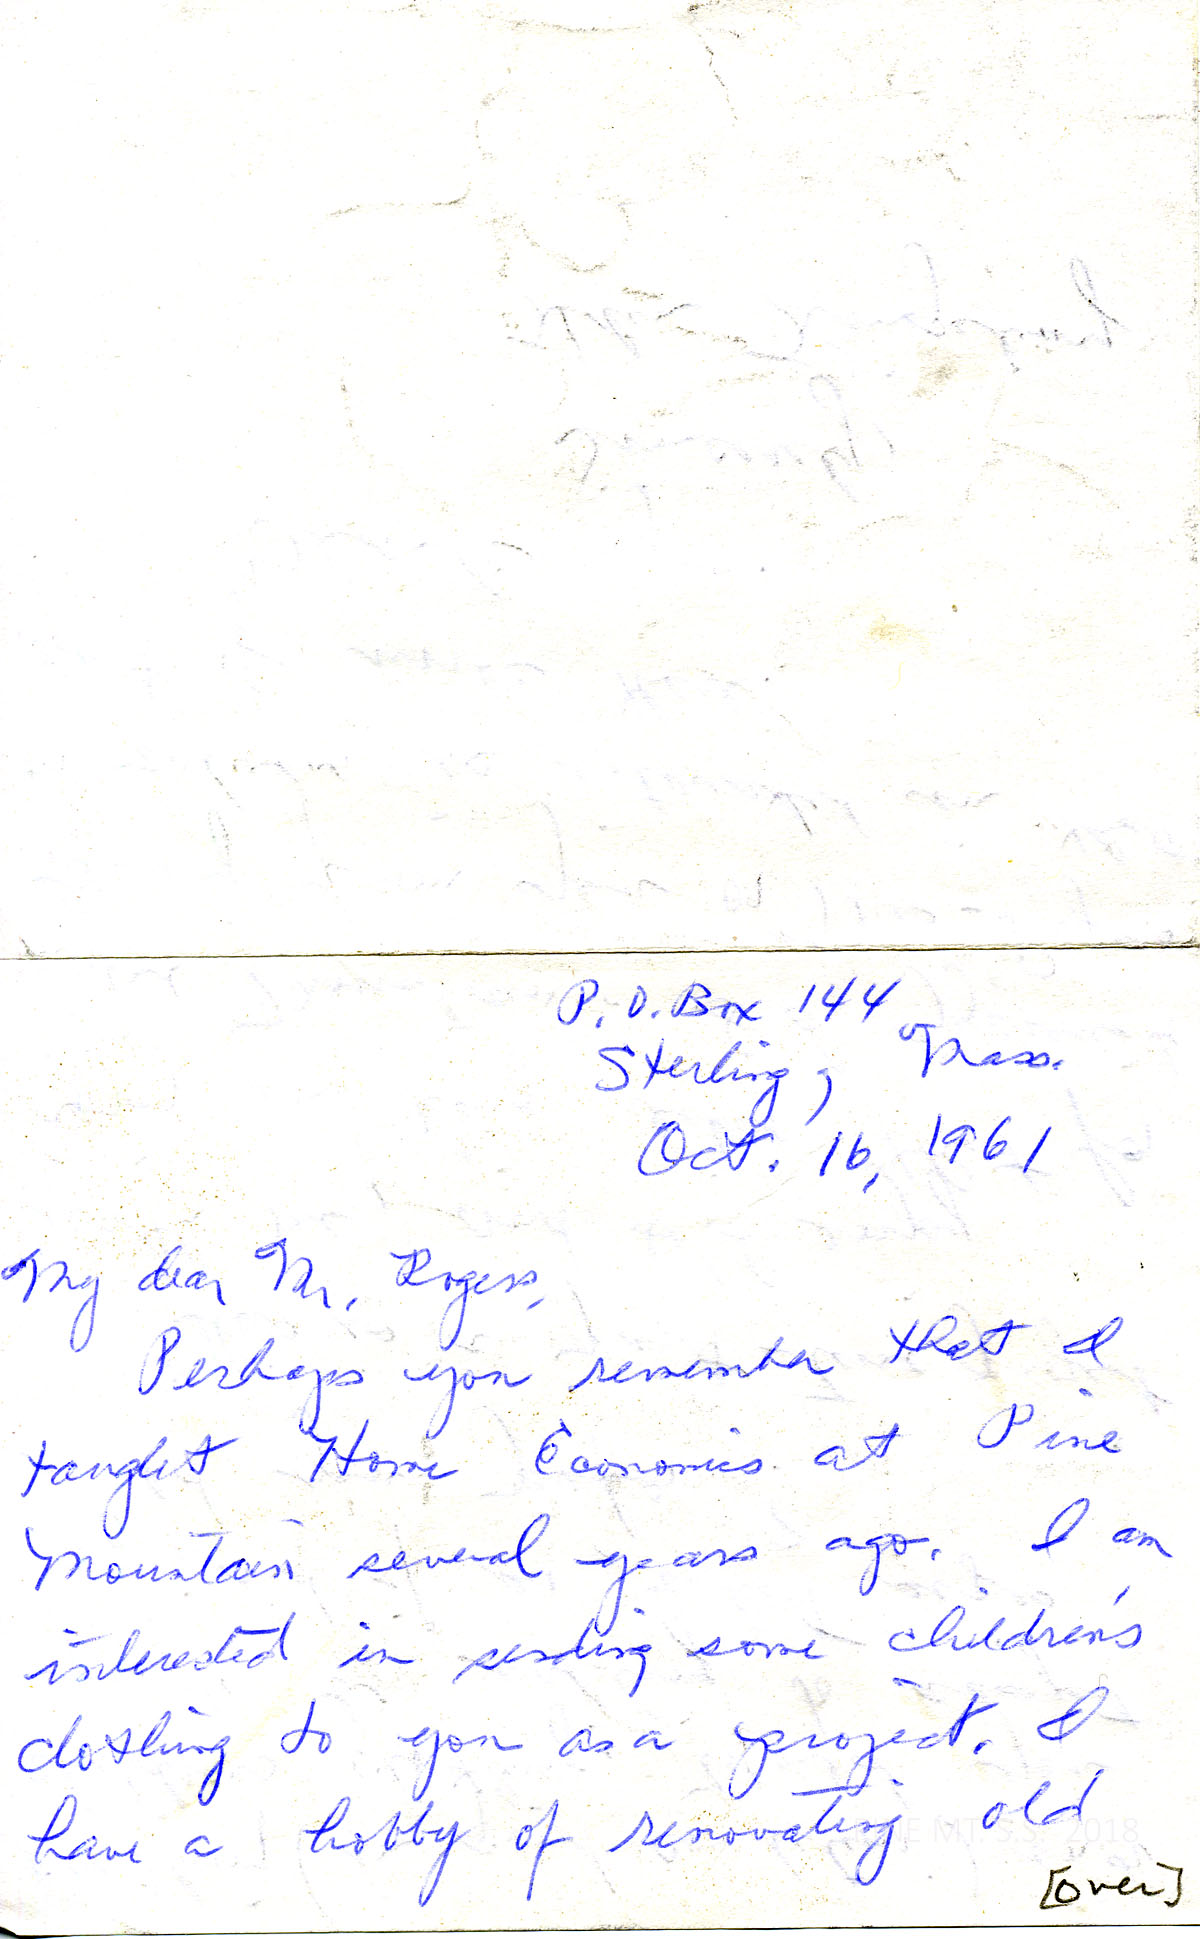 P.O. Box 144
Sterling, Mass.
Oct. 16, 1961
My dear Mr. Rogers,
Perhaps you remember that I
taught Home Economics at Pine
Mountain several years ago. I am
interested in sending some children's
clothing to you as a project. I
have a hobby of renovating old
[over]